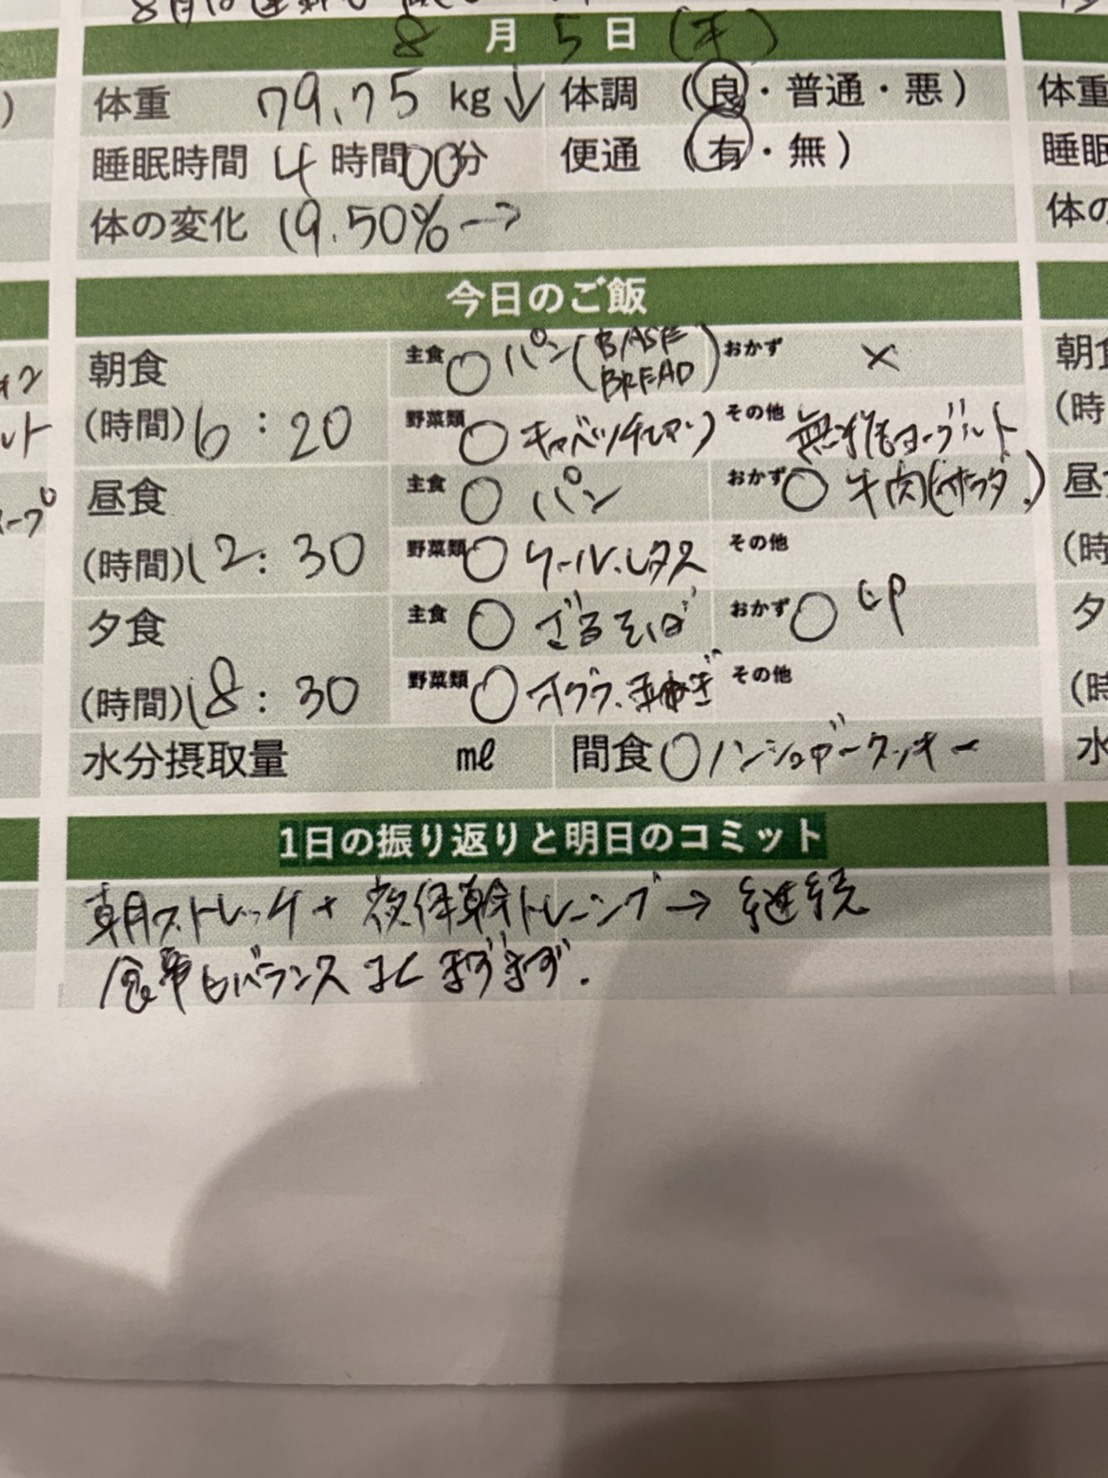 8月5日(水)
体重 79.75 kg↓ 体調 (良・普通・悪)
睡眠時間 4時間00分 便通 (有・無)
体の変化 19.50%→
今日のご飯
朝食 主食 ○パン(BASE BREAD) おかず ×
(時間)6:20 野菜類 ○キャベツ その他 無糖ヨーグルト
昼食 主食 ○パン おかず ○牛肉
(時間)12:30 野菜類 ○ケール、レタス その他
夕食 主食 ○ざるそば おかず ○卵
(時間)18:30 野菜類 ○オクラ、 その他
水分摂取量 ml 間食 ○ノンシュガークッキー
1日の振り返りと明日のコミット
朝ストレッチ+夜体幹トレーニング→継続
食事もバランスよくまずまず.